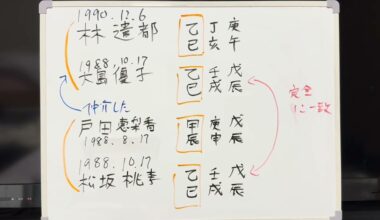 1990.12.6
林 遣都 乙巳 丁亥 庚午
1988.10.17
大島優子 乙巳 壬戌 戊辰
仲介した
戸田恵梨香 甲辰 庚申 戊辰
1988.8.17
1988.10.17
松坂 桃李 乙巳 壬戌 戊辰
完全に一致